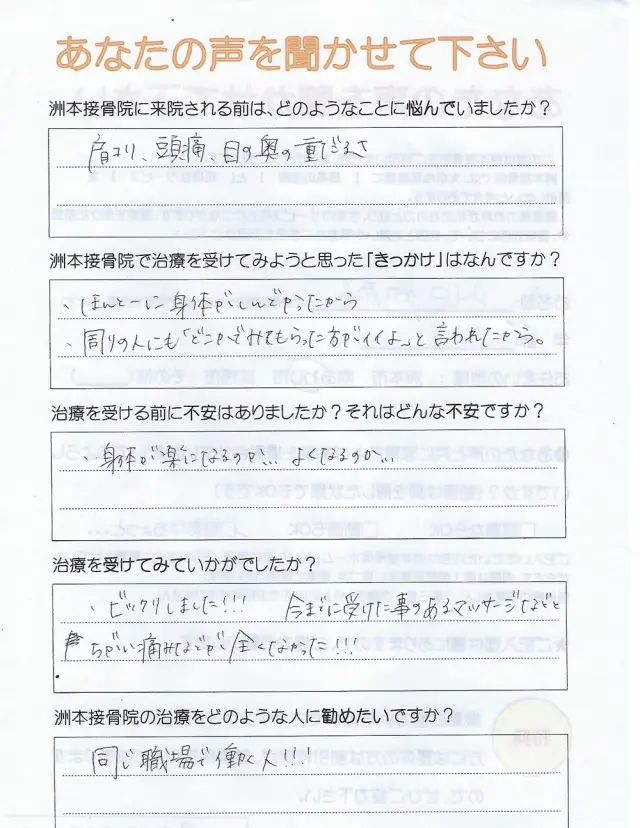 あなたの声を聞かせて下さい
洲本接骨院に来院される前は、どのようなことに悩んでいましたか？
肩コリ、頭痛、目の奥の重だるさ
洲本接骨院で治療を受けてみようと思った「きっかけ」はなんですか？
、ほんとーに身体がしんどかったから
、周りの人にも「どこかでみてもらった方がイイよ」と言われたから。
治療を受ける前に不安はありましたか？それはどんな不安ですか？
、身体が楽になるのか… よくなるのか…
治療を受けてみていかがでしたか？
、ビックリしました!!! 今までに受けた事のあるマッサージなどと
ちがい痛みなどが全くなかった!!!
洲本接骨院の治療をどのような人に勧めたいですか？
同じ職場で働く人!!!